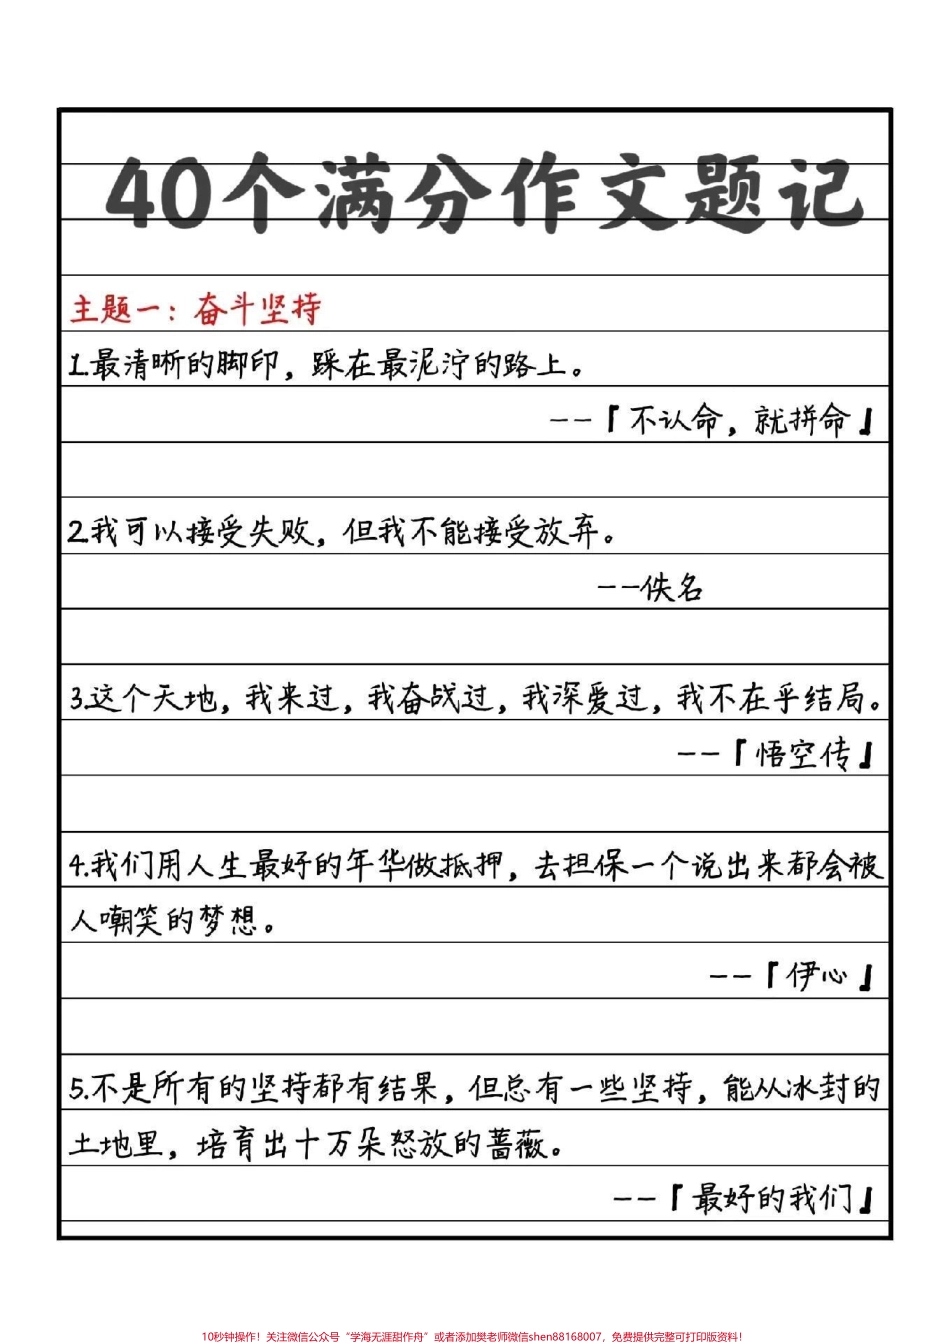 40个满分作文题记
主题一：奋斗坚持
1.最清晰的脚印，踩在最泥泞的路上。
--『不认命，就拼命』
2.我可以接受失败，但我不能接受放弃。
--佚名
3.这个天地，我来过，我奋战过，我深爱过，我不在乎结局。
--『悟空传』
4.我们用人生最好的年华做抵押，去担保一个说出来都会被
人嘲笑的梦想。
--『伊心』
5.不是所有的坚持都有结果，但总有一些坚持，能从冰封的
土地里，培育出十万朵怒放的蔷薇。
--『最好的我们』
10秒钟操作！关注微信公众号“学海无涯甜作舟”或者添加樊老师微信shen88168007，免费提供完整可打印版资料！